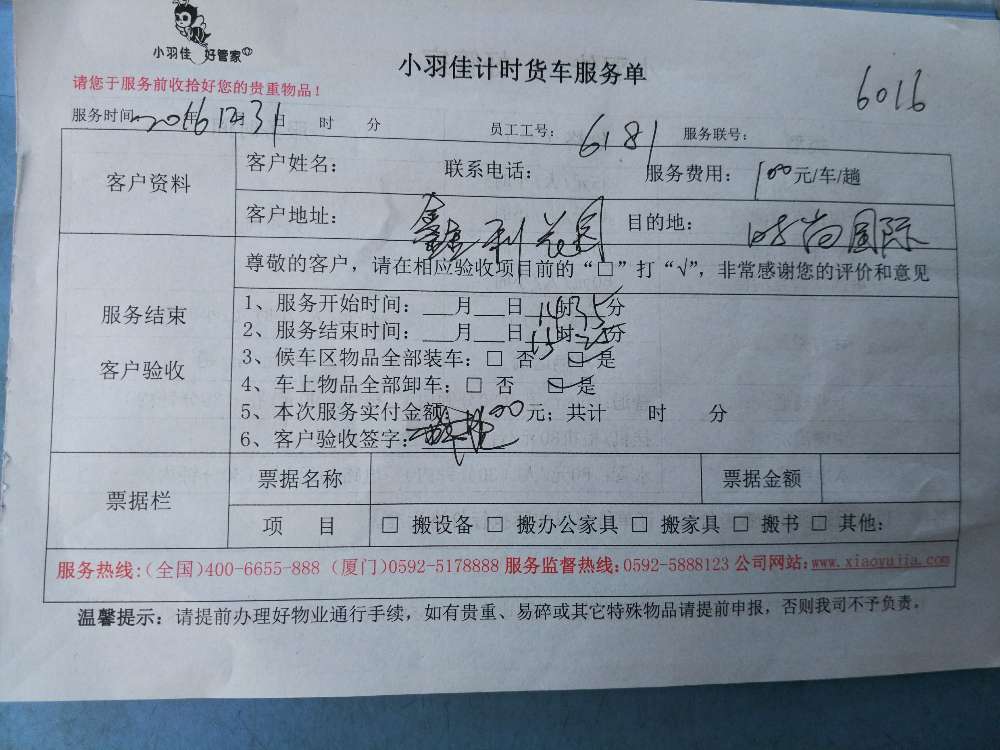 小羽佳 好管家
小羽佳计时货车服务单
6016
请您于服务前收拾好您的贵重物品！
服务时间 2016年12月31日 时 分 员工工号：6181 服务联号：
客户资料
客户姓名： 联系电话： 服务费用：100元/车/趟
客户地址：鑫利花园 目的地：时尚国际
服务结束
客户验收
尊敬的客户，请在相应验收项目前的“□”打“√”，非常感谢您的评价和意见
1、服务开始时间：___月___日14时35分
2、服务结束时间：___月___日15时分
3、候车区物品全部装车：□ 否 ☑ 是
4、车上物品全部卸车：□ 否 ☑ 是
5、本次服务实付金额：100元；共计 时 分
6、客户验收签字：
票据栏
票据名称 票据金额
项 目 □ 搬设备 □ 搬办公家具 □ 搬家具 □ 搬书 □ 其他：
服务热线：（全国）400-6655-888（厦门）0592-5178888 服务监督热线：0592-5888123 公司网站：www.xiaoyujia.com
温馨提示：请提前办理好物业通行手续，如有贵重、易碎或其它特殊物品请提前申报，否则我司不予负责。